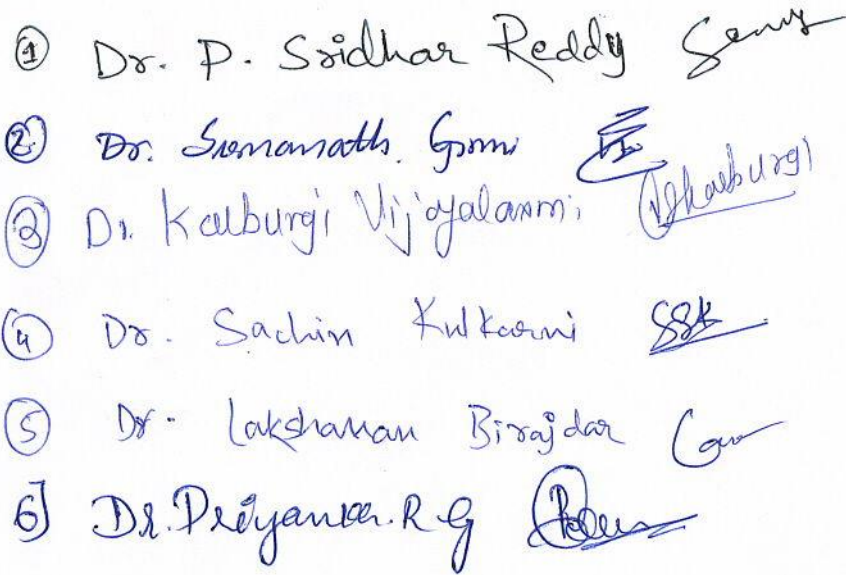 ① Dr. P. Sridhar Reddy
② Dr. Somanath.
③ Dr. Kalburgi Vijayalaxmi Vkalburgi
④ Dr. Sachin Kulkarni SSK
⑤ Dr. Lakshaman Birajdar
6] Dr. Priyanka. R. G